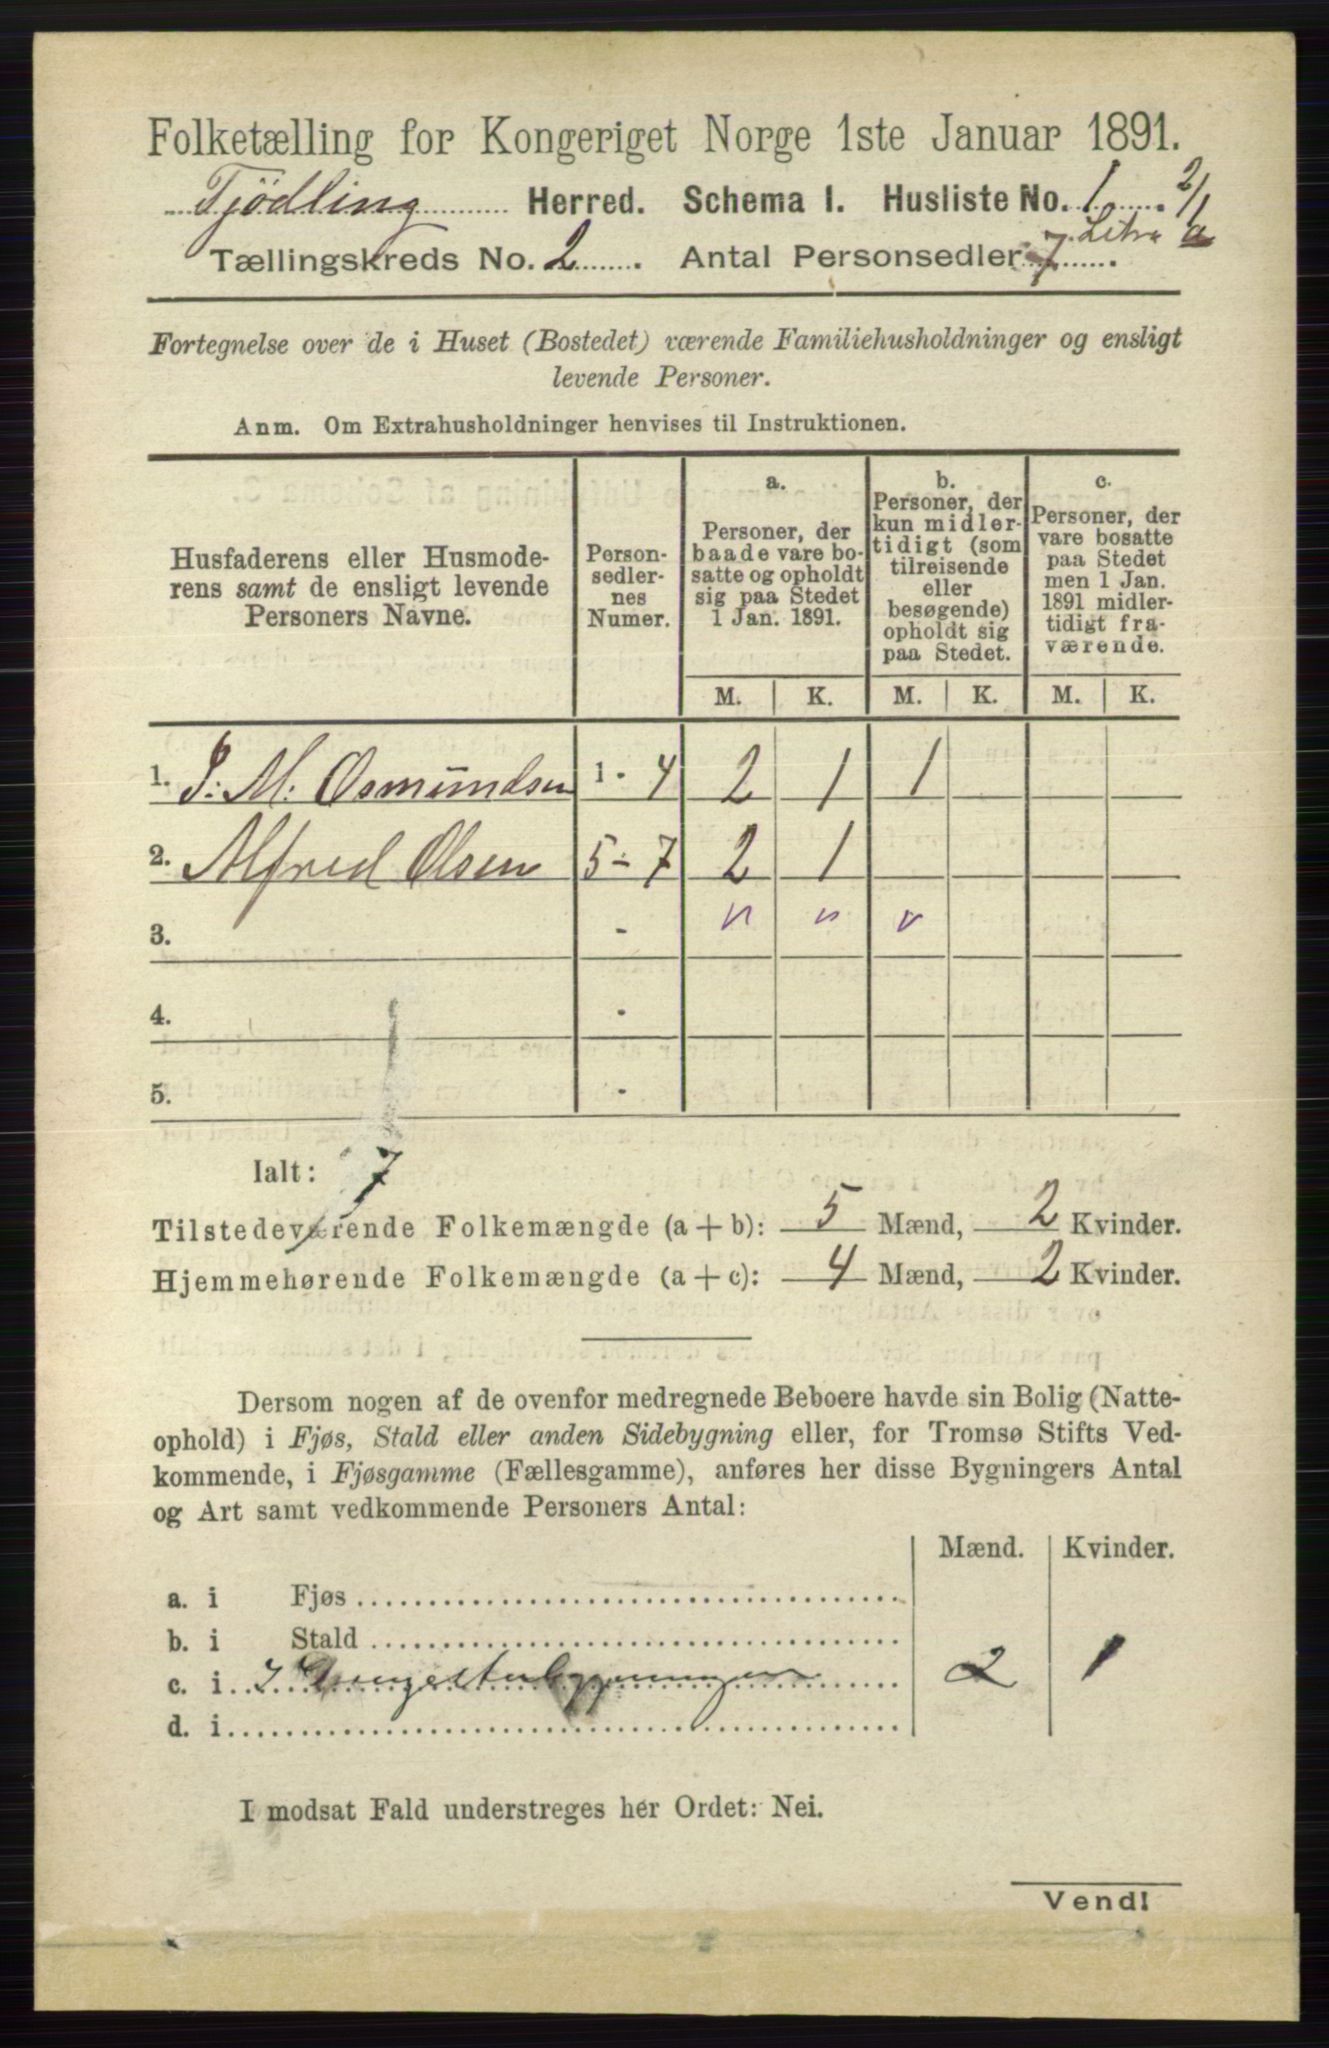 Folketælling for Kongeriget Norge 1ste Januar 1891.
Tjødling Herred. Schema I. Husliste No. 1. 2/1
Litra a
Tællingskreds No. 2. Antal Personsedler 7.
Fortegnelse over de i Huset (Bostedet) værende Familiehusholdninger og ensligt
levende Personer.
Anm. Om Extrahusholdninger henvises til Instruktionen.
Husfaderens eller Husmode-
rens samt de ensligt levende
Personers Navne.
Person-
sedler-
nes
Numer.
a.
Personer, der
baade vare bo-
satte og opholdt
sig paa Stedet
1 Jan. 1891.
b.
Personer, der
kun midler-
tidigt (som
tilreisende
eller
besøgende)
opholdt sig
paa Stedet.
c.
Personer, der
vare bosatte
paa Stedet
men 1 Jan.
1891 midler-
tidigt fra-
værende.
M. K. M. K. M. K.
1. M. Osmundsen 1 - 4 2 1 1
2. Alfred Olsen 5 - 7 2 1
3. -
4. -
5. -
Ialt: 7
Tilstedeværende Folkemængde (a + b): 5 Mænd, 2 Kvinder.
Hjemmehørende Folkemængde (a + c): 4 Mænd, 2 Kvinder.
Dersom nogen af de ovenfor medregnede Beboere havde sin Bolig (Natte-
ophold) i Fjøs, Stald eller anden Sidebygning eller, for Tromsø Stifts Ved-
kommende, i Fjøsgamme (Fællesgamme), anføres her disse Bygningers Antal
og Art samt vedkommende Personers Antal:
Mænd. Kvinder.
a. i Fjøs
b. i Stald
c. i 2 1
d. i
I modsat Fald understreges her Ordet: Nei.
Vend!